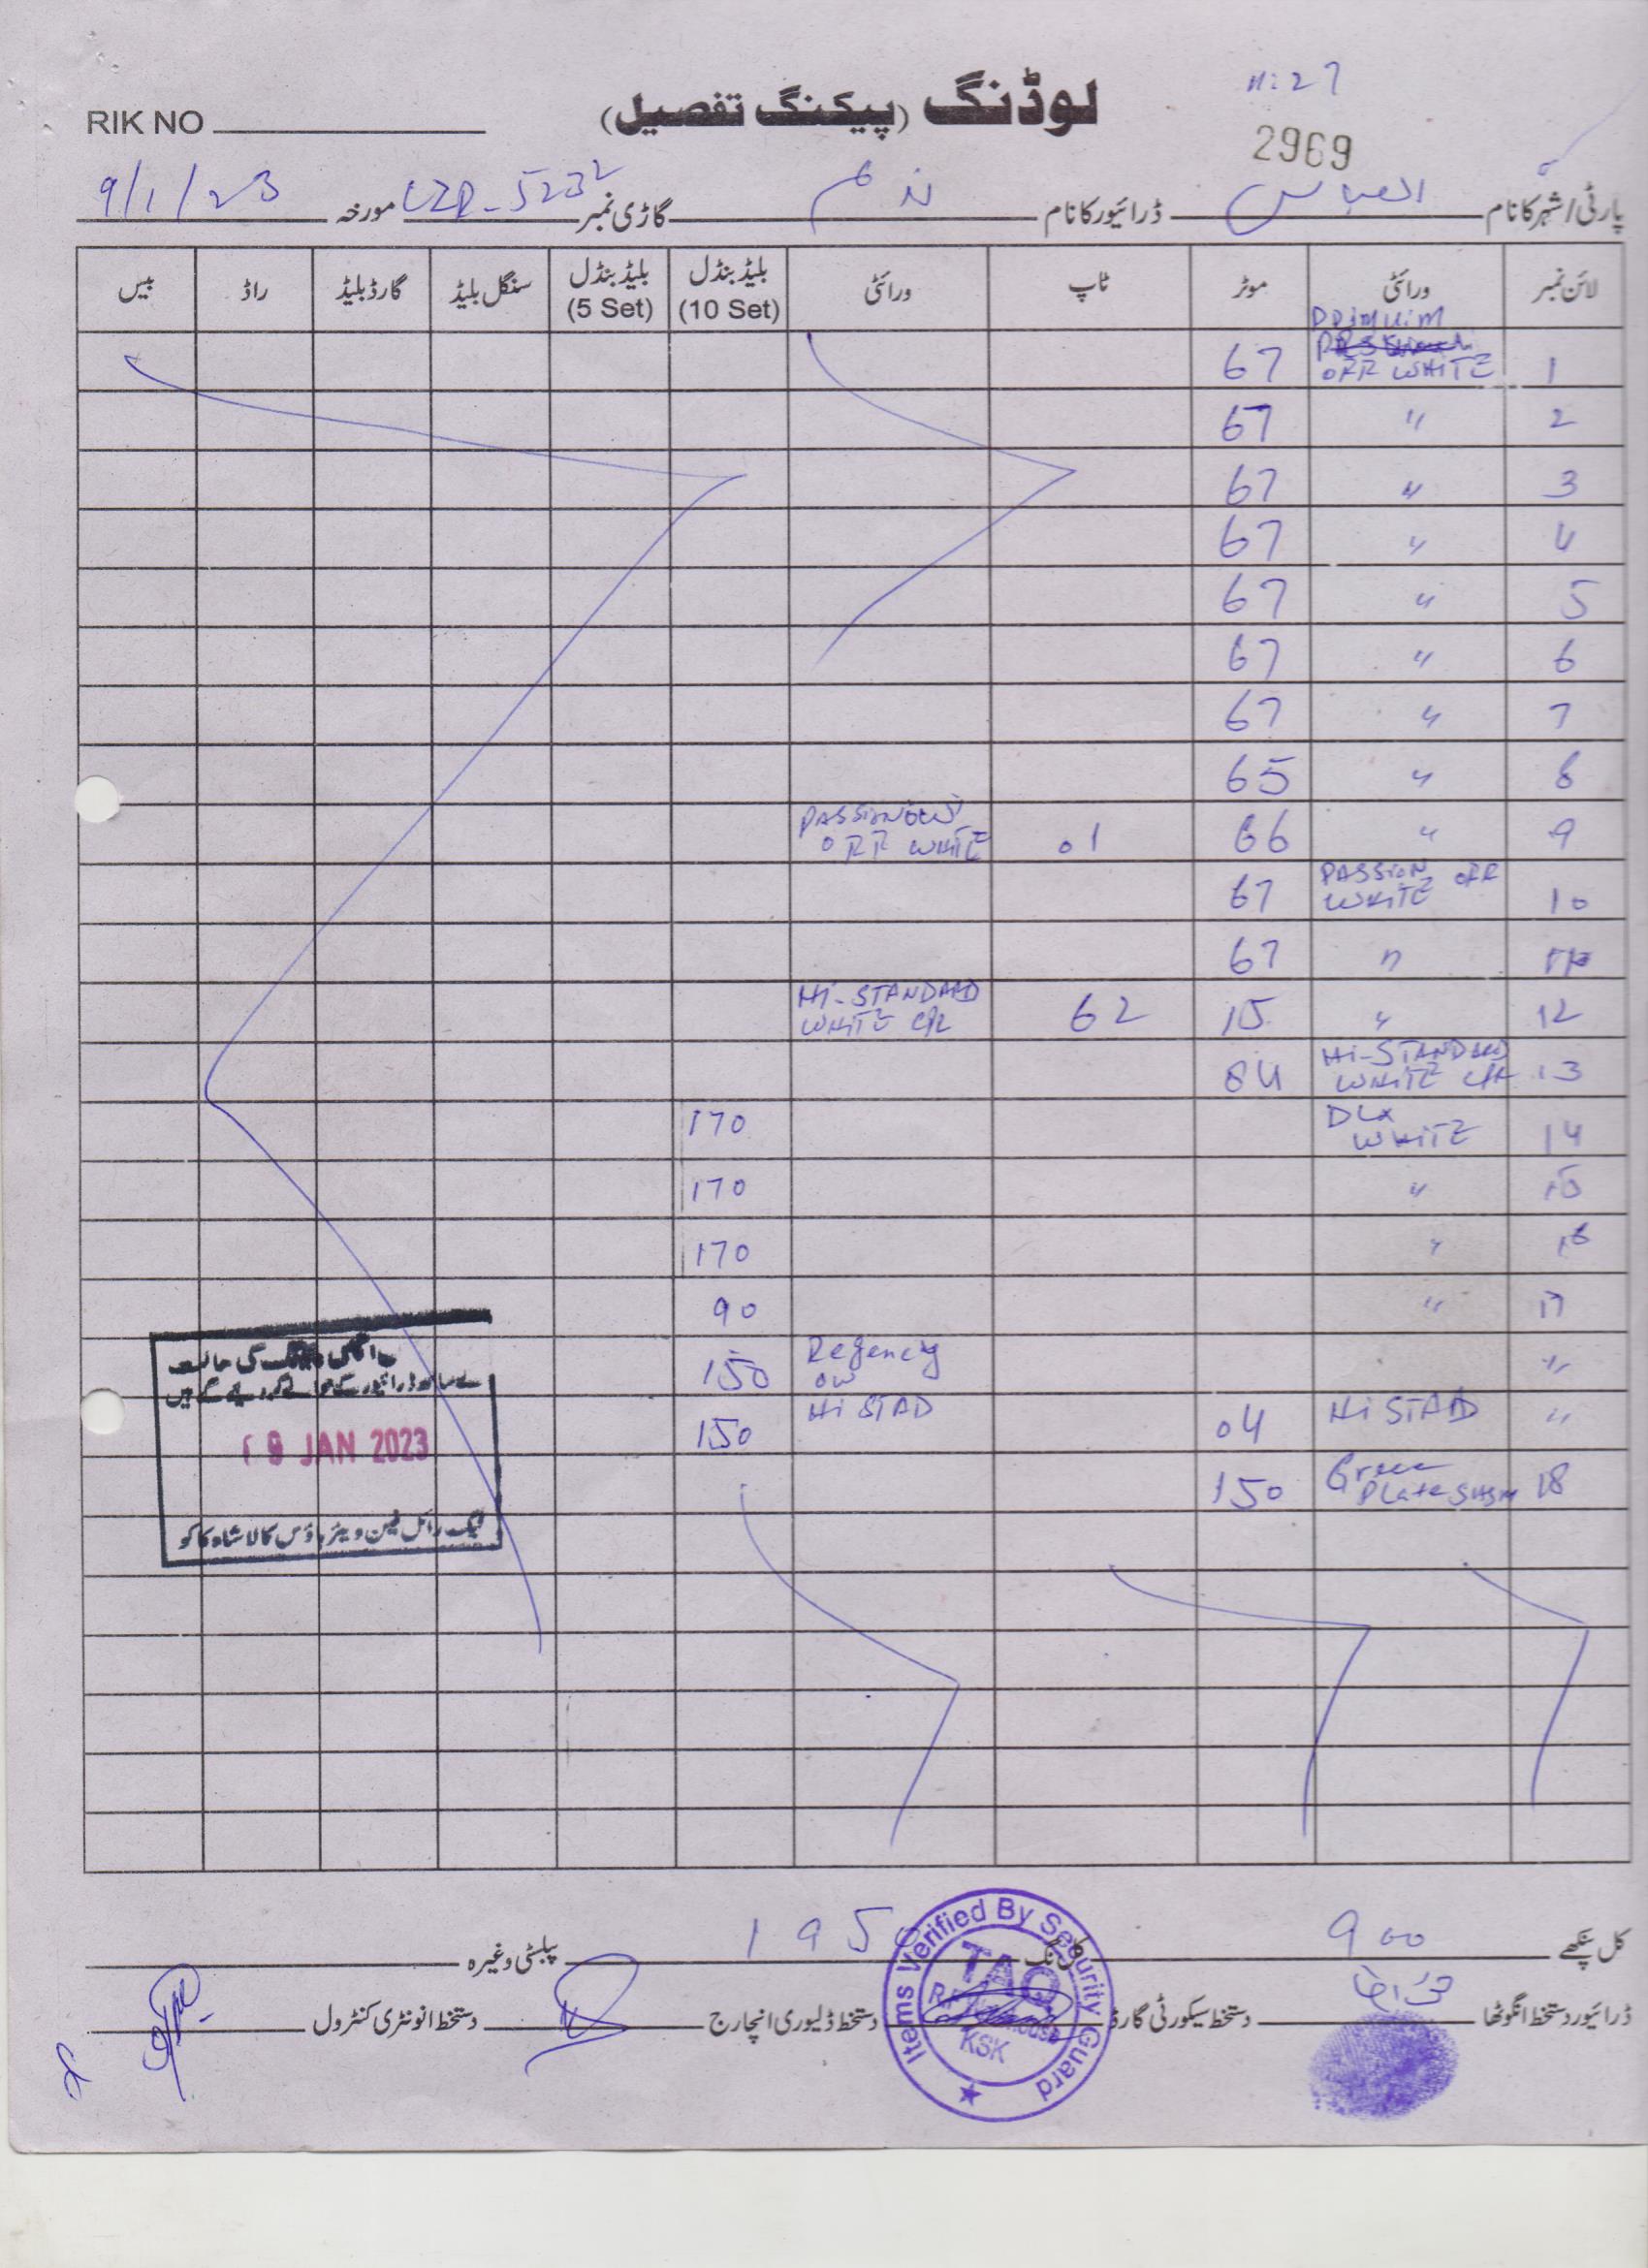 11:27
لوڈنگ (پیکنگ تفصیل)
RIK NO
2969
پارٹی/شہر کا نام العباس ڈرائیور کا نام گاڑی نمبر مورخہ 9/1/23
لائن نمبر ورائٹی موٹر ٹاپ ورائٹی بلیڈ بنڈل (10 Set) بلیڈ بنڈل (5 Set) سنگل بلیڈ گارڈ بلیڈ راڈ بیس
1 OFF WHITE 67
2 " 67
3 " 67
4 " 67
5 " 67
6 " 67
7 " 67
8 " 65
9 " 66 01 PASSION OFF WHITE
10 PASSION OFF WHITE 67
" 67
12 " 15 62 Hi-STANDARD WHITE
13 Hi-STANDARD WHITE 84
14 DLX WHITE 170
15 " 170
16 " 170
17 " 90
" Regency OW 150
" Hi STAD 04 Hi STAD 150
18 Plate 150
ڈرائیور کے حوالے کر دیے گئے ہیں
19 JAN 2023
رائل فین ویئر ہاؤس کالا شاہ کاکو
کل پنکھے 900 1950 پبلسٹی وغیرہ
ڈرائیور دستخط انگوٹھا دستخط سیکورٹی گارڈ دستخط ڈلیوری انچارج دستخط انونٹری کنٹرول
Items Verified By Security Guard
TAQ
KSK